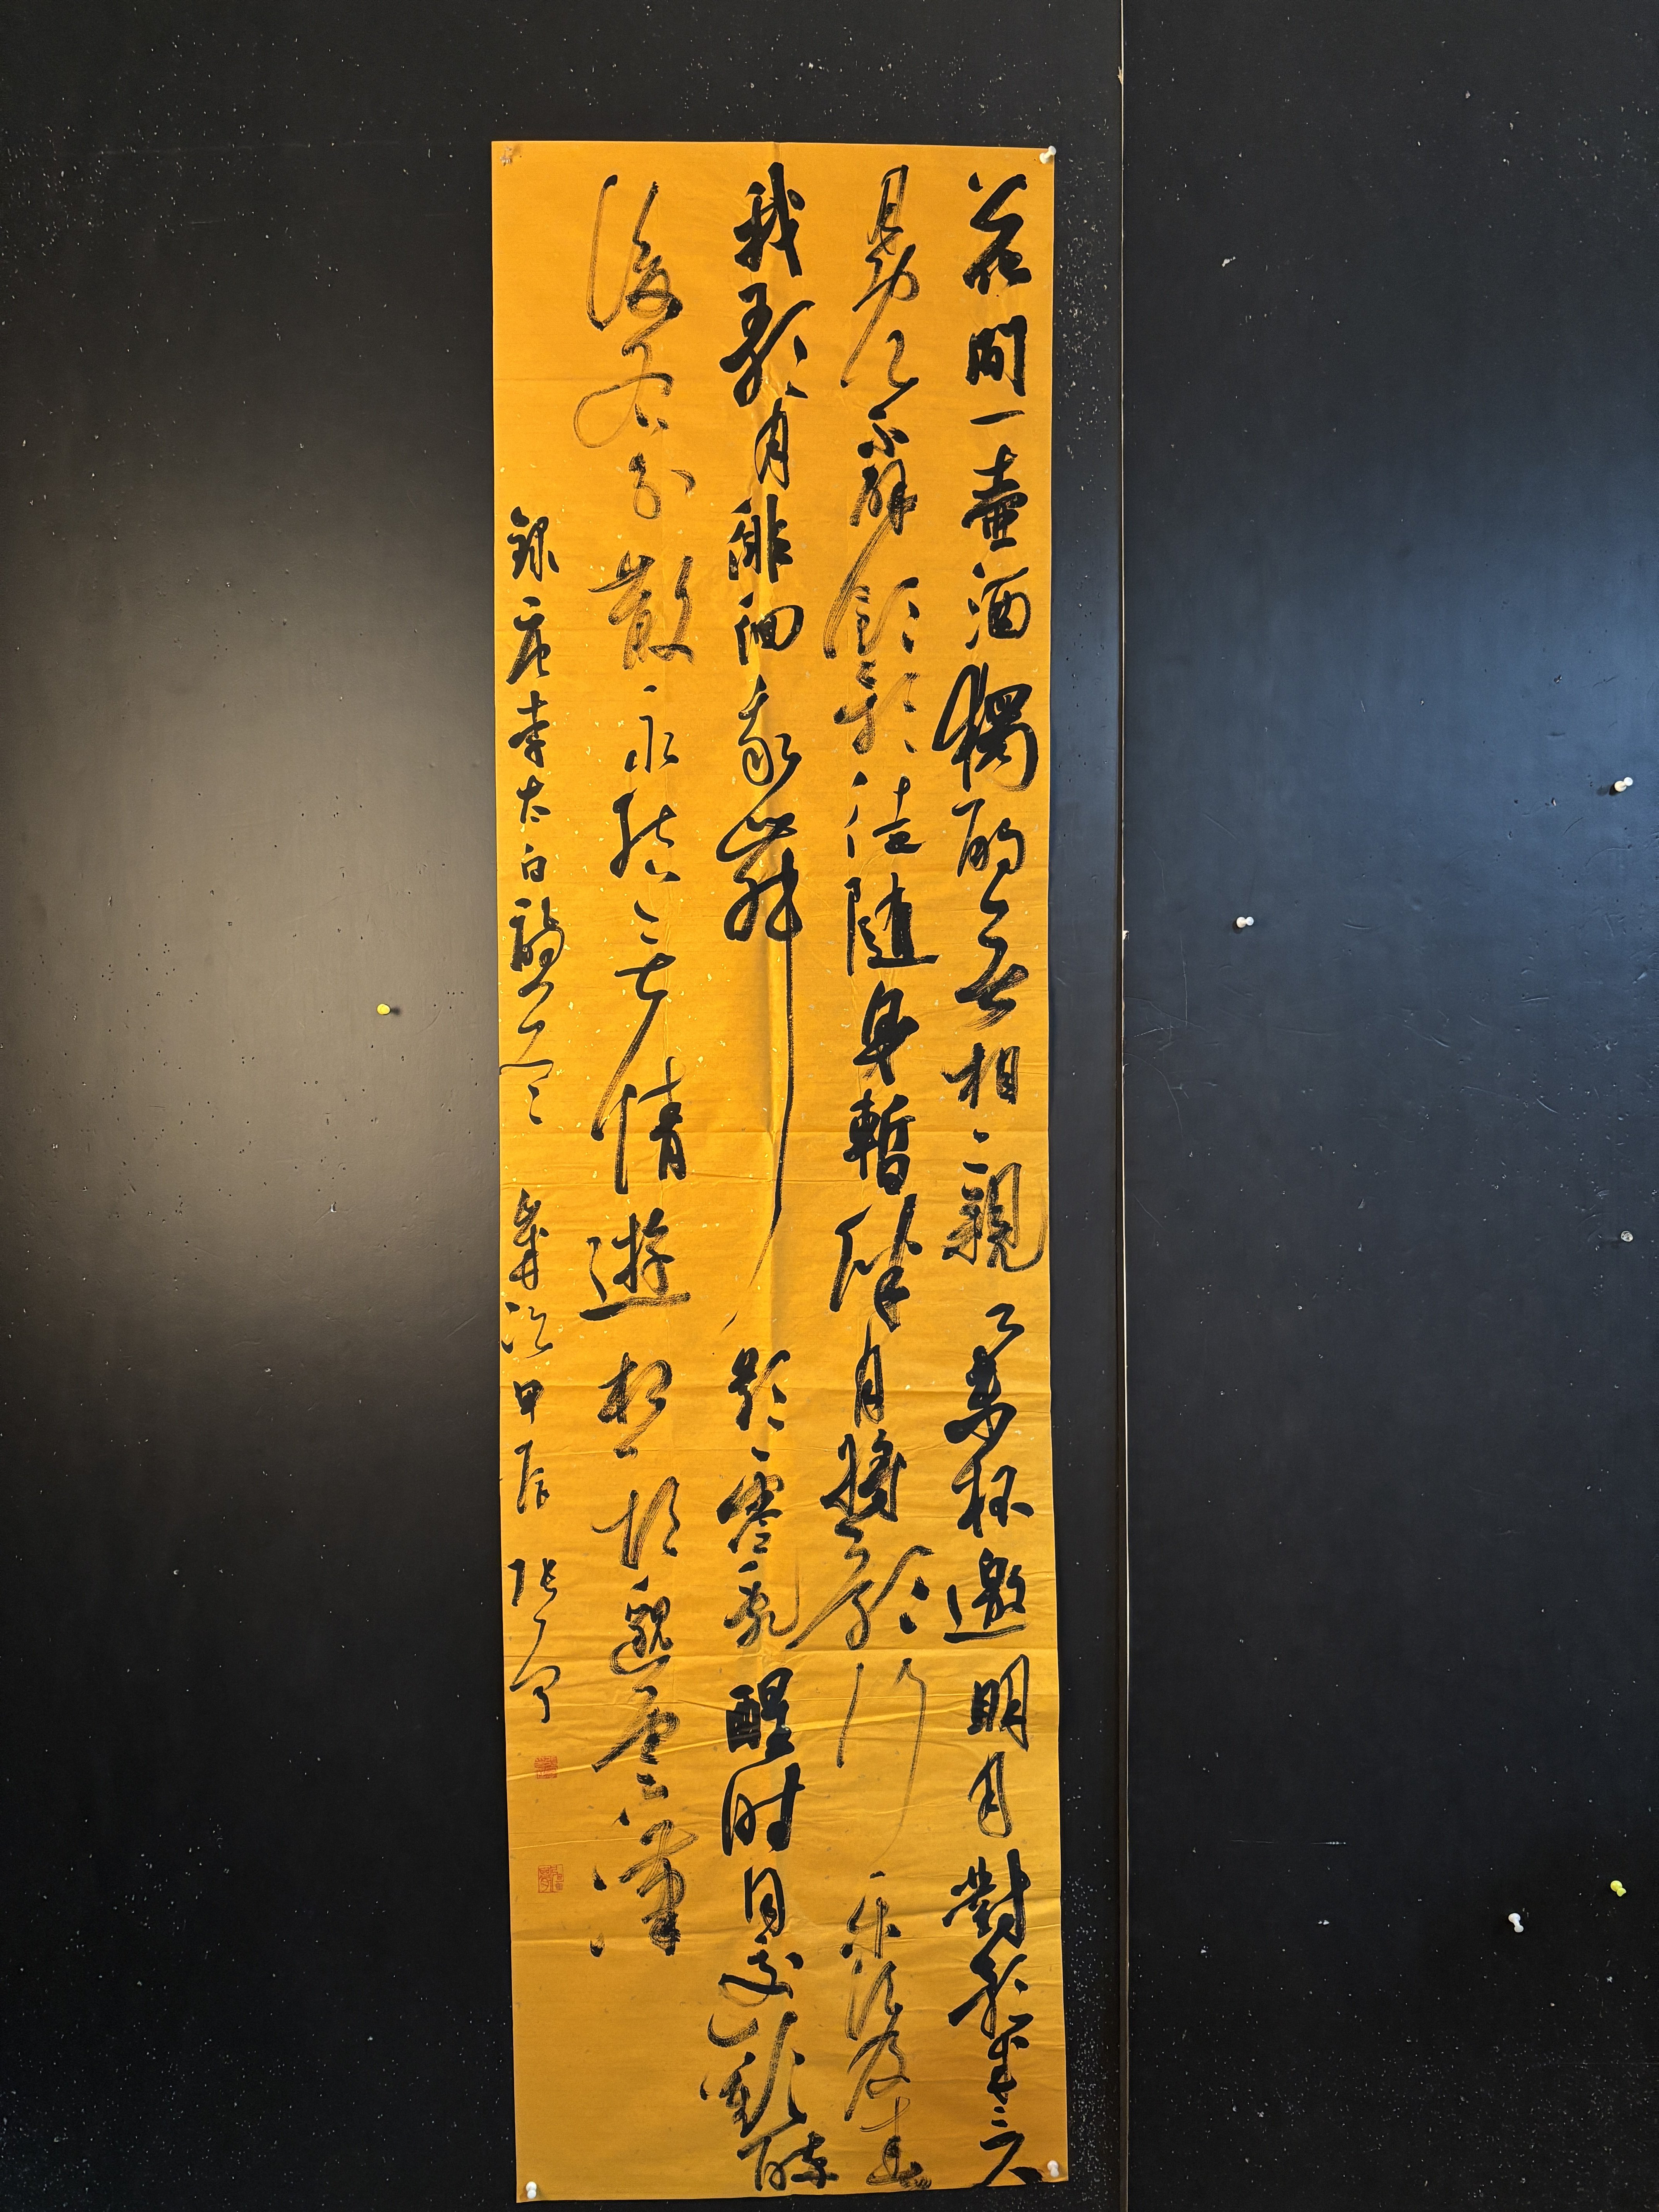 花間一壺酒獨酌無相親舉杯邀明月對影成三人
月既不解飲影徒隨身暫伴月將影行樂須及春
我歌月徘徊我舞影零亂醒時同交歡醉
後各分散永結無情遊相期邈雲漢
錄唐李太白詩 歲次甲辰 張